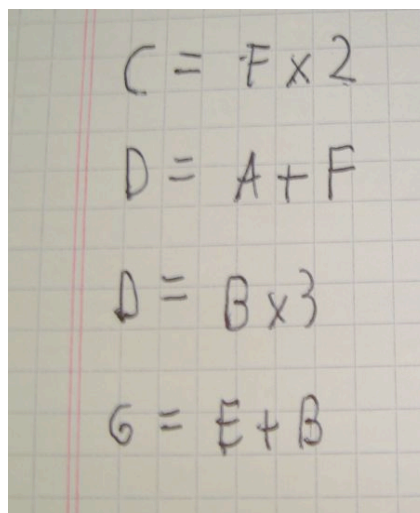 C = F x 2
D = A + F
D = B x 3
G = E + B